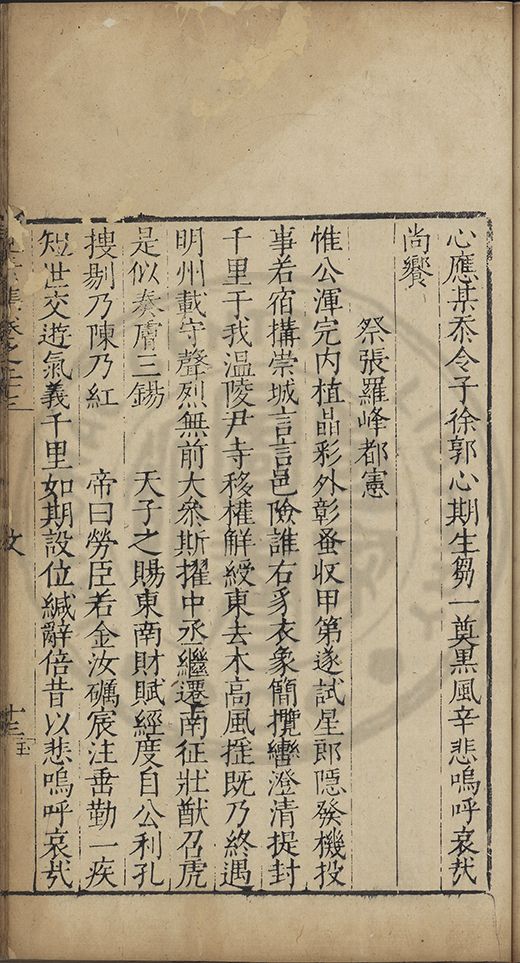 心應某忝令子徐郭心期生芻一奠黑風辛悲嗚呼哀㢤
尚饗
祭張羅峰都憲
惟公渾完内植晶彩外彰蚤収甲第遂試星郎隱發機投
事若宿搆崇城言言邑險誰右豸衣象簡攬轡澄清提封
千里于我温陵尹寺移權觧綬東去木高風摧既乃終遇
明州載守聲烈無前大叅斯擢中丞繼遷南征壯猷召虎
是似奏膚三錫 天子之賜東南財賦經度自公利孔
搜剔乃陳乃紅 帝曰勞臣若金汝礪宸注乖勤一疾
短世交遊氣義千里如期設位緘辭倍昔以悲嗚呼哀㢤
集卷之二十三
文
十三